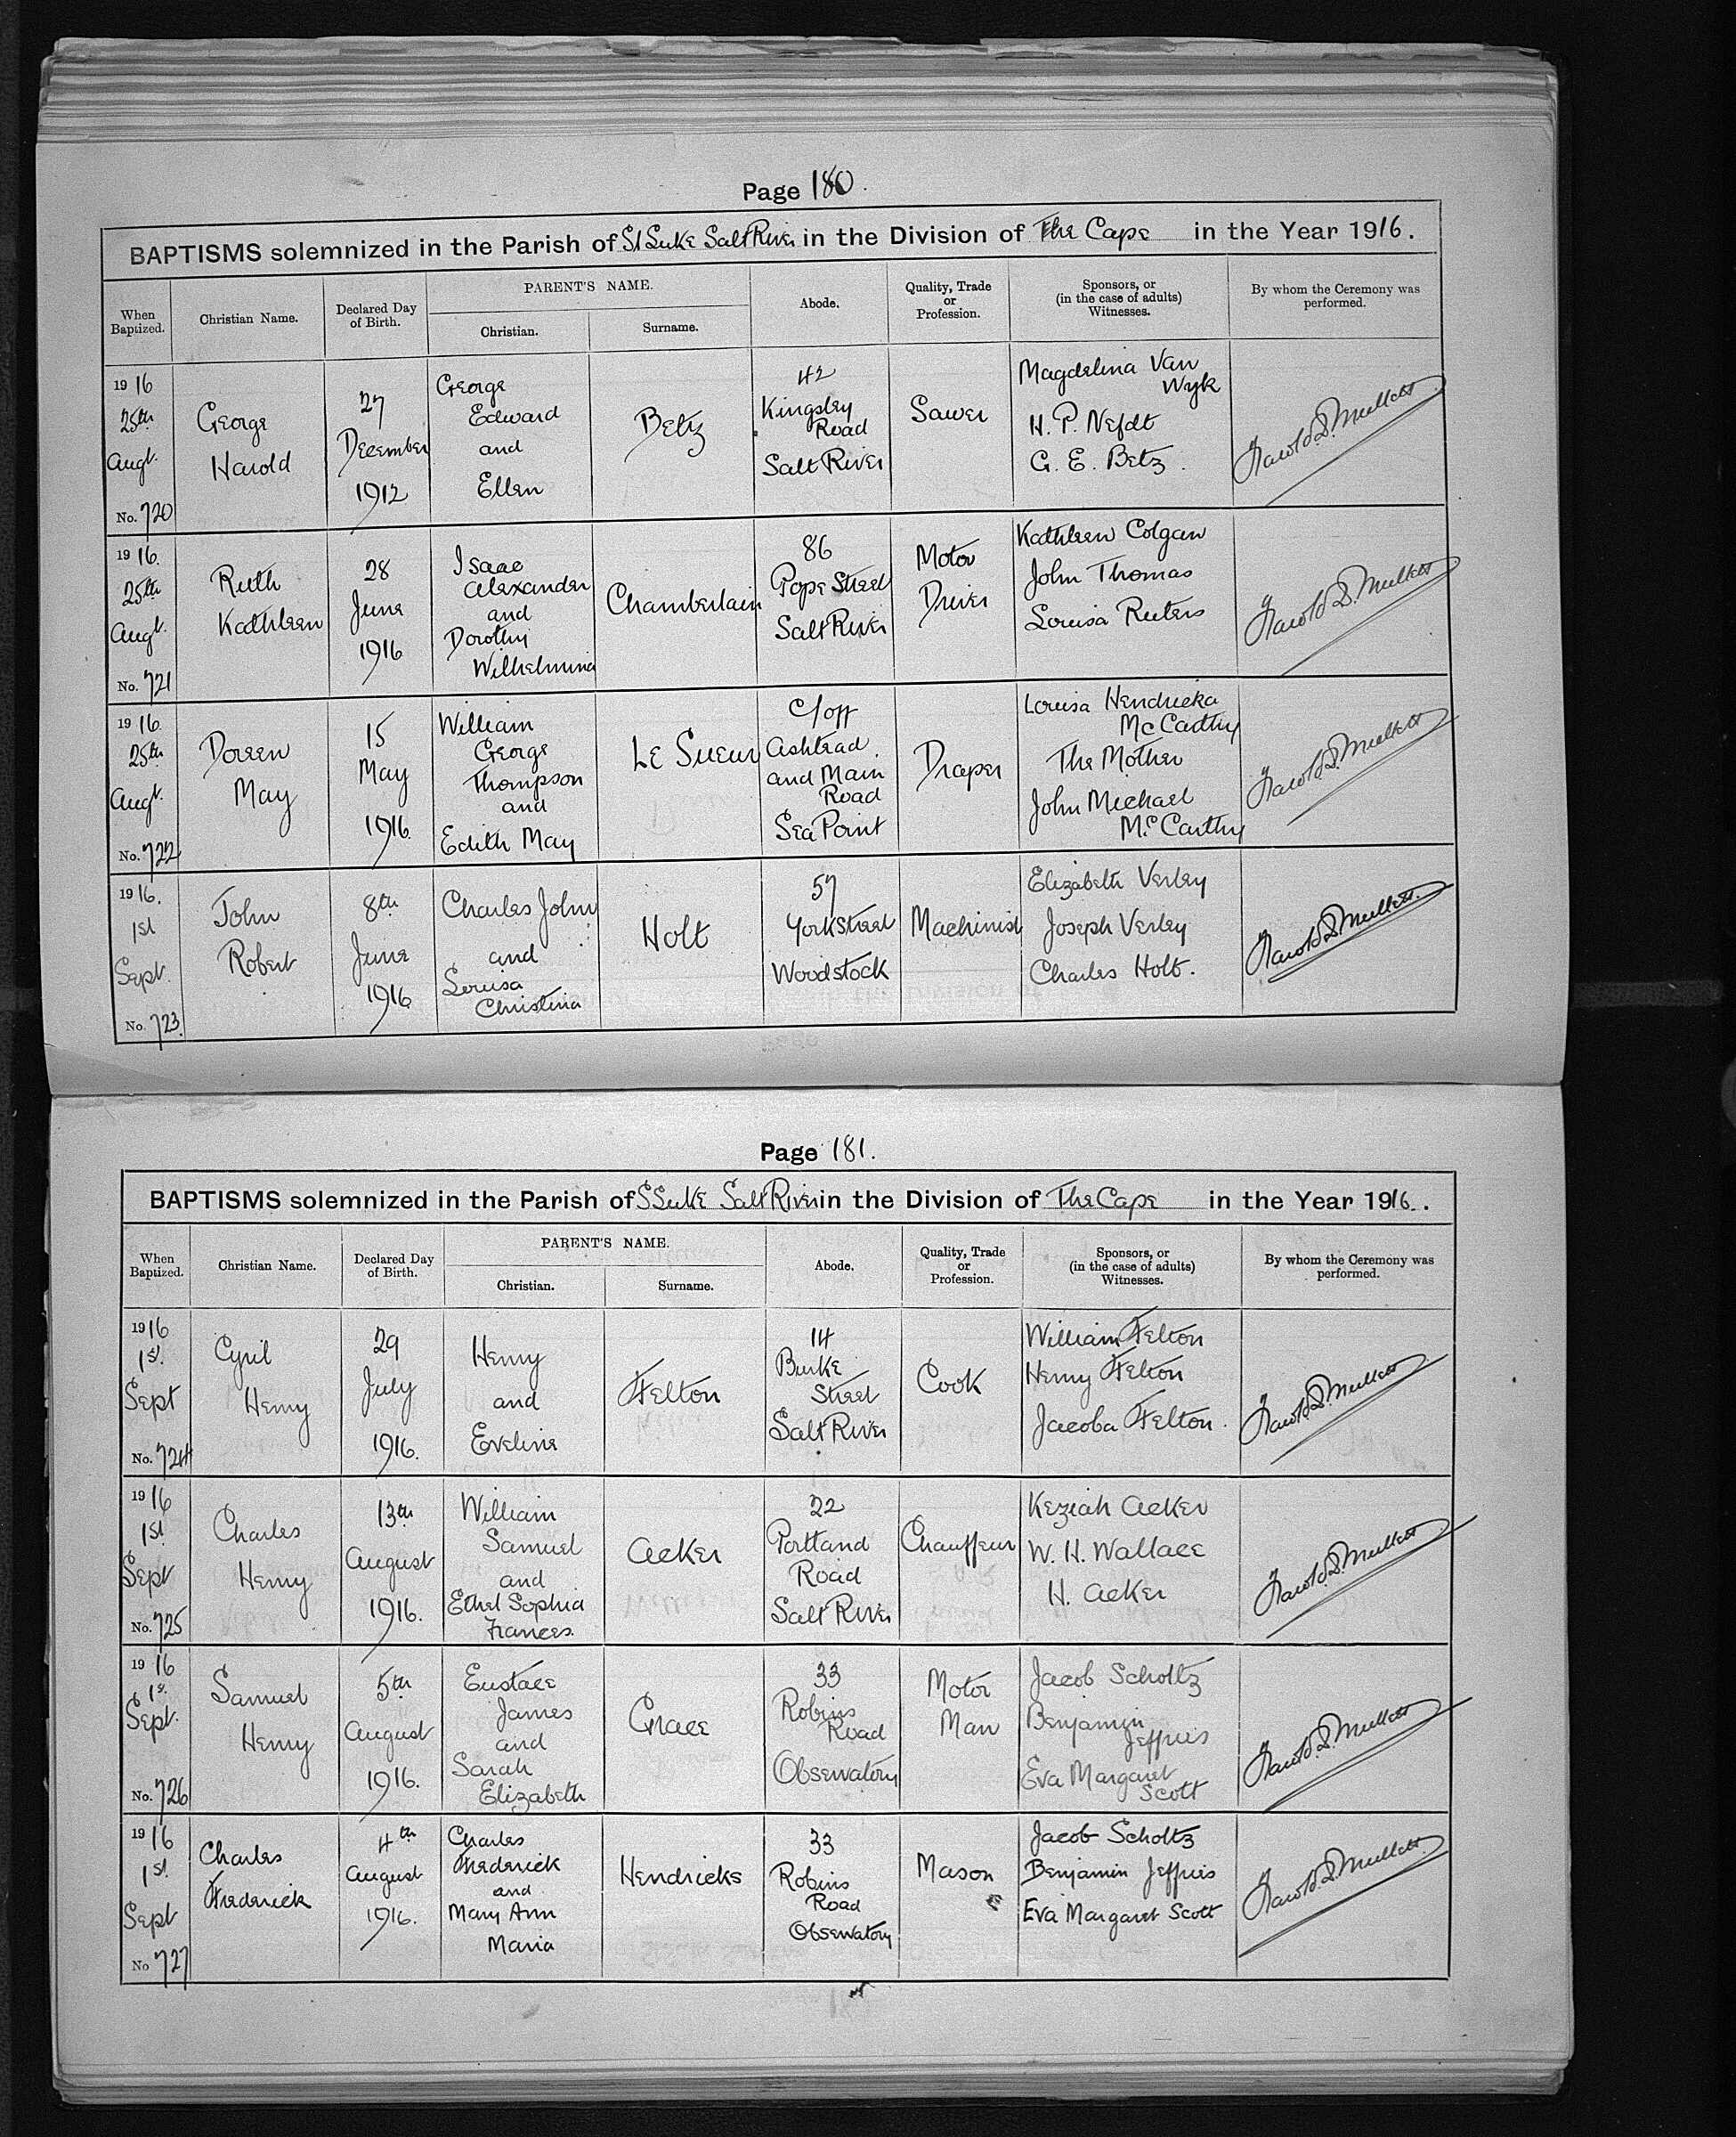 Page 180.
BAPTISMS solemnized in the Parish of St Luke Salt River in the Division of The Cape in the Year 1916.
When Baptized.
Christian Name.
Declared Day of Birth.
PARENT'S NAME.
Christian.
Surname.
Abode.
Quality, Trade or Profession.
Sponsors, or (in the case of adults) Witnesses.
By whom the Ceremony was performed.
1916
25th
Augt.
No. 720
George
Harold
27
December
1912
George
Edward
and
Ellen
Betz
42
Kingsley
Road
Salt River
Sawer
Magdelina Van
Wyk
H. P. Nefdt
G. E. Betz.
Harold S. Mullett
1916.
25th
Augt.
No. 721
Ruth
Kathleen
28
June
1916
Isaac
Alexander
and
Dorothy
Wilhelmina
Chamberlain
86
Pope Street
Salt River
Motor
Driver
Kathleen Colgan
John Thomas
Louisa Ruiters
Harold S. Mullett
1916.
25th
Augt.
No. 722
Doreen
May
15
May
1916
William
George
Thompson
and
Edith May
Le Sueur
C/off
Ashtead
and Main
Road
Sea Point
Draper
Louisa Hendricka
McCarthy
The Mother
John Michael
McCarthy
Harold S. Mullett
1916.
1st
Sept.
No. 723.
John
Robert
8th
June
1916
Charles John
and
Louisa
Christina
Holt
57
York Street
Woodstock
Machinist
Elizabeth Verley
Joseph Verley
Charles Holt.
Harold S. Mullett.
Page 181.
BAPTISMS solemnized in the Parish of S Luke Salt River in the Division of The Cape in the Year 1916.
When Baptized.
Christian Name.
Declared Day of Birth.
PARENT'S NAME.
Christian.
Surname.
Abode.
Quality, Trade or Profession.
Sponsors, or (in the case of adults) Witnesses.
By whom the Ceremony was performed.
1916
1st.
Sept
No. 724
Cyril
Henry
29
July
1916.
Henry
and
Eveline
Felton
14
Burke
Street
Salt River
Cook
William Felton
Henry Felton
Jacoba Felton.
Harold S. Mullett
1916
1st
Sept
No. 725
Charles
Henry
13th
August
1916.
William
Samuel
and
Ethel Sophia
Frances.
Acker
22
Portland
Road
Salt River
Chauffeur
Keziah Acker
W. H. Wallace
H. Acker
Harold S. Mullett
1916
1st
Sept.
No. 726
Samuel
Henry
5th
August
1916.
Eustace
James
and
Sarah
Elizabeth
Grace
33
Robins
Road
Observatory
Motor
Man
Jacob Scholtz
Benjamin
Jeffries
Eva Margaret
Scott
Harold S. Mullett
1916
1st
Sept
No 727
Charles
Frederick
4th
August
1916.
Charles
Frederick
and
Mary Ann
Maria
Hendricks
33
Robins
Road
Observatory
Mason
Jacob Scholtz
Benjamin Jeffries
Eva Margaret Scott
Harold S. Mullett.